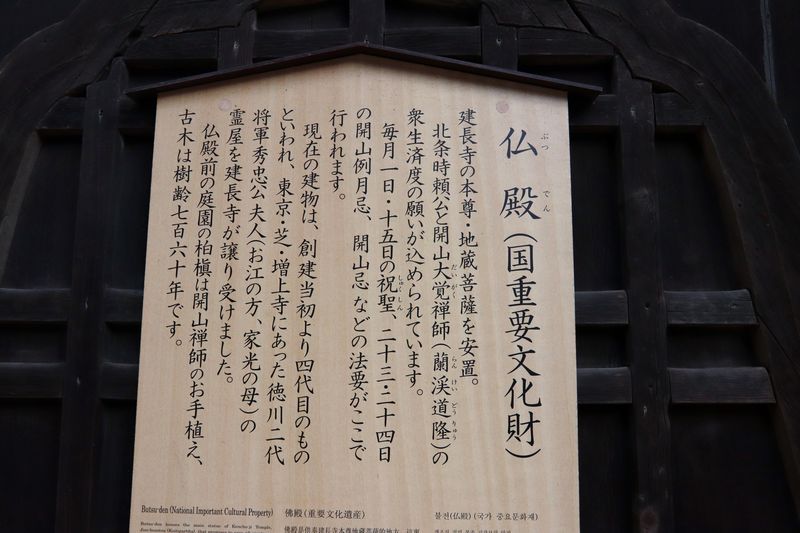 仏殿(国重要文化財)
ぶつ でん
建長寺の本尊・地蔵菩薩を安置。
北条時頼公と開山大覚禅師(蘭渓道隆)の
だいがく
らんけいどうりゅう
衆生済度の願いが込められています。
毎月一日・十五日の祝聖、二十三・二十四日
しゅくしん
の開山例月忌、開山忌などの法要がここで
行われます。
現在の建物は、創建当初より四代目のもの
といわれ、東京・芝・増上寺にあった徳川二代
将軍秀忠公夫人(お江の方、家光の母)の
霊屋を建長寺が譲り受けました。
仏殿前の庭園の柏槇は開山禅師のお手植え、
古木は樹齢七百六十年です。
Butsu-den (National Important Cultural Property)
Butsu-den houses the main statue of Kencho-ji Temple,
佛殿(重要文化遺産)
불전(仏殿) (국가 중요문화재)